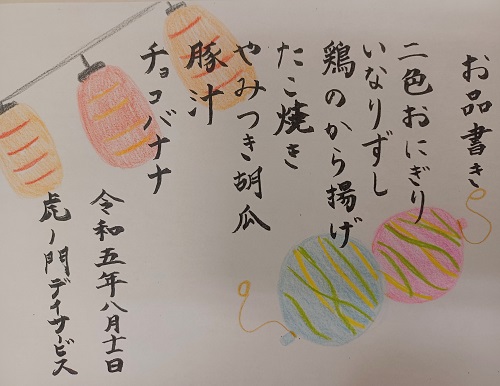 お品書き
二色おにぎり
いなりずし
鶏のから揚げ
たこ焼き
やみつき胡瓜
豚汁
チョコバナナ
令和五年八月十一日
虎ノ門デイサービス